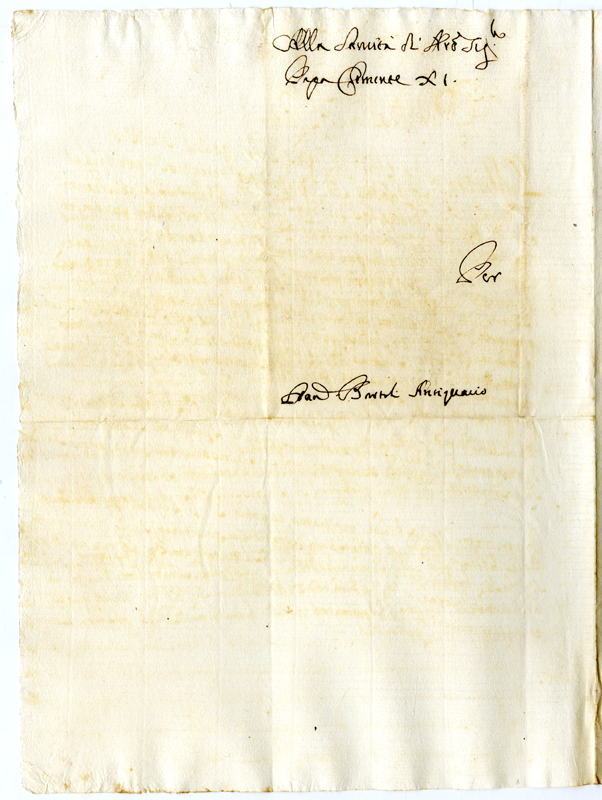 Alla Santità di Nro Sig.re
Papa Clemente XI.
Per
Bartol: Antiquario